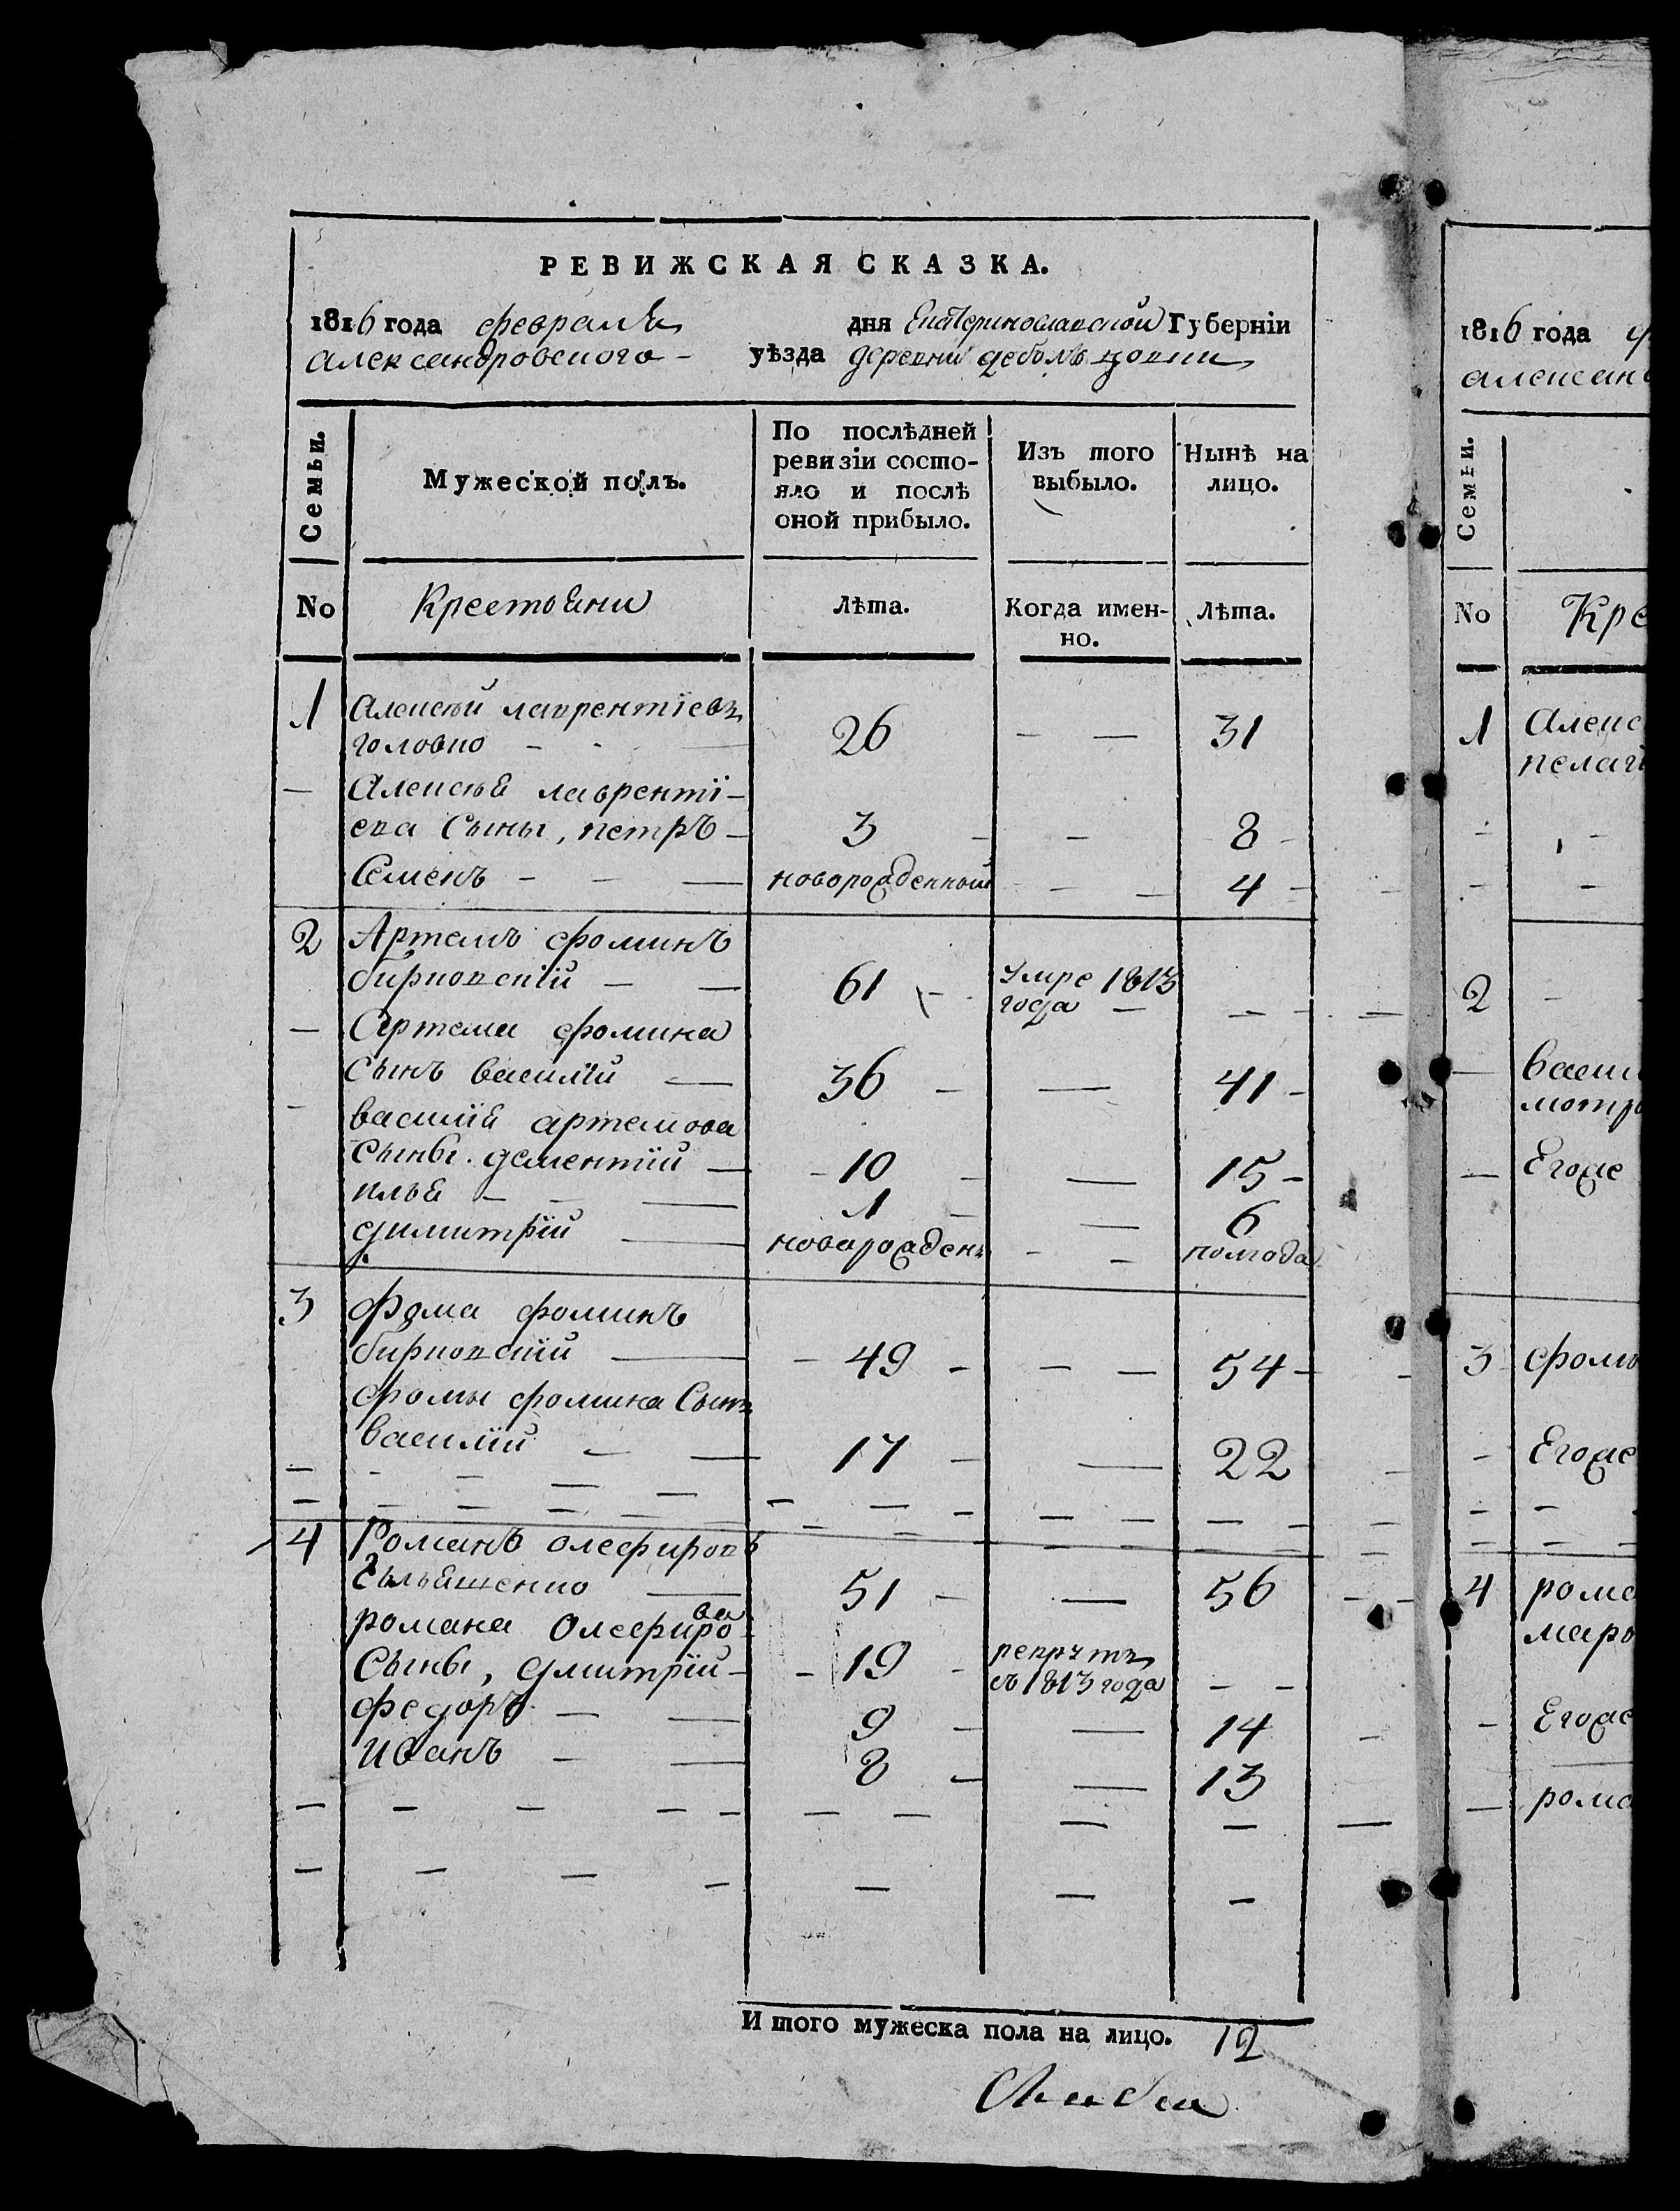 РЕВИЖСКАЯ СКАЗКА.
1816 года февраля дня Екатеринославской Губерніи
александровского уѣзда деревни
Семьи.
Мужеской полъ.
По послѣдней ревизіи состояло и послѣ оной прибыло.
Изъ того выбыло.
Нынѣ на лицо.
No Крестьяни Лѣта. Когда именно. Лѣта.
1 Алексѣй лаврентіевъ
головко 26 31
Алексѣя лавренті-
ева Сыны, петръ 3 8
Семенъ новорожденный 4
2 Артемъ фоминъ
бирковскій 61 умре 1813 года
Артема фомина
сынъ василій 36 41
василія артемова
Сыны. дементій 10 15
илья 1 6
димитрій новорожденъ полгода
3 Фома фоминъ
бирковскій 49 54
фомы фомина Сынъ
василій 17 22
4 Романъ олефировъ
51 56
романа Олефирова
Сыны, дмитрій 19 рекрутъ съ 1813 года
федоръ 9 14
Иванъ 8 13
Итого мужеска пола на лицо. 12
1816 года
Семьи.
No Кре
1 Алекс
пелаг
2
васил
мотр
Егоже
3 фомы
Егоже
4 рома
мар
Егоже
рома